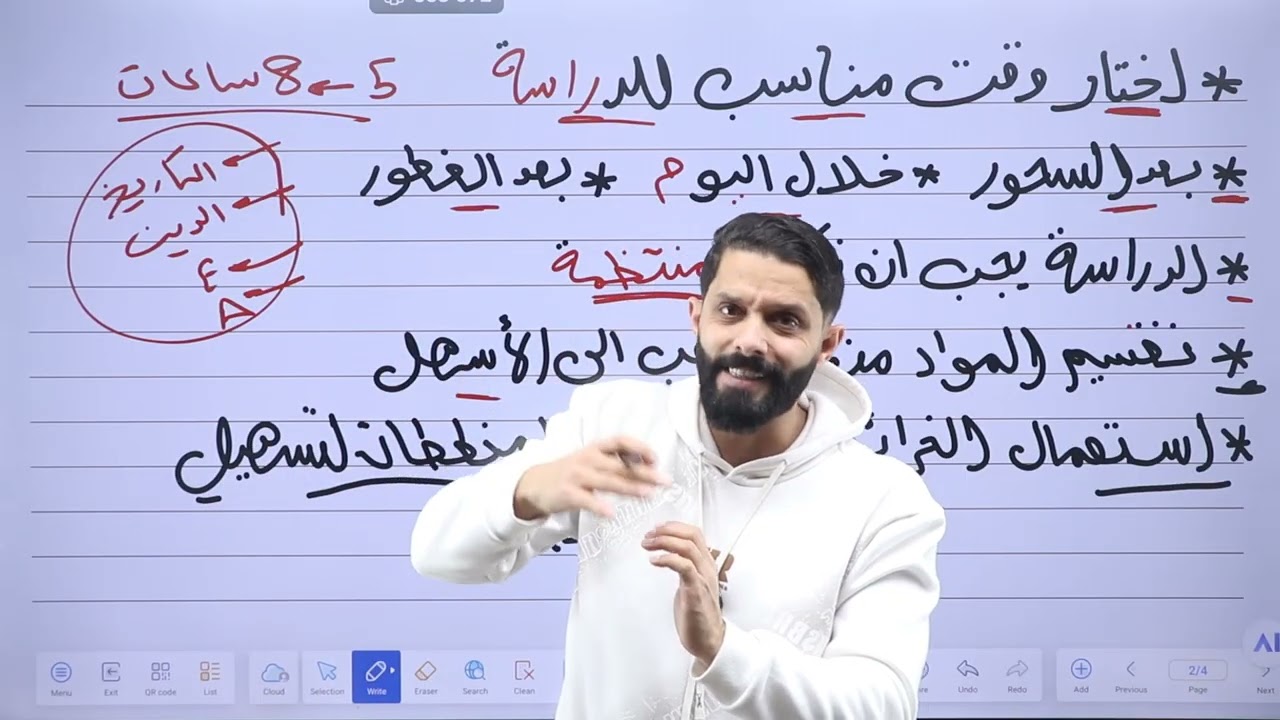 * اختار وقت مناسب للدراسة 5 ← 8 ساعات
* بعد السحور * خلال اليوم * بعد الفطور
* الدراسة يجب ان منتظمة
* تقسيم المواد الى الأسهل
* استعمال لتسهيل
التاريخ
الدين
E
A
Menu Exit QR code List Cloud Selection Write Eraser Search Clean Undo Redo Add Previous 2/4 Page Next